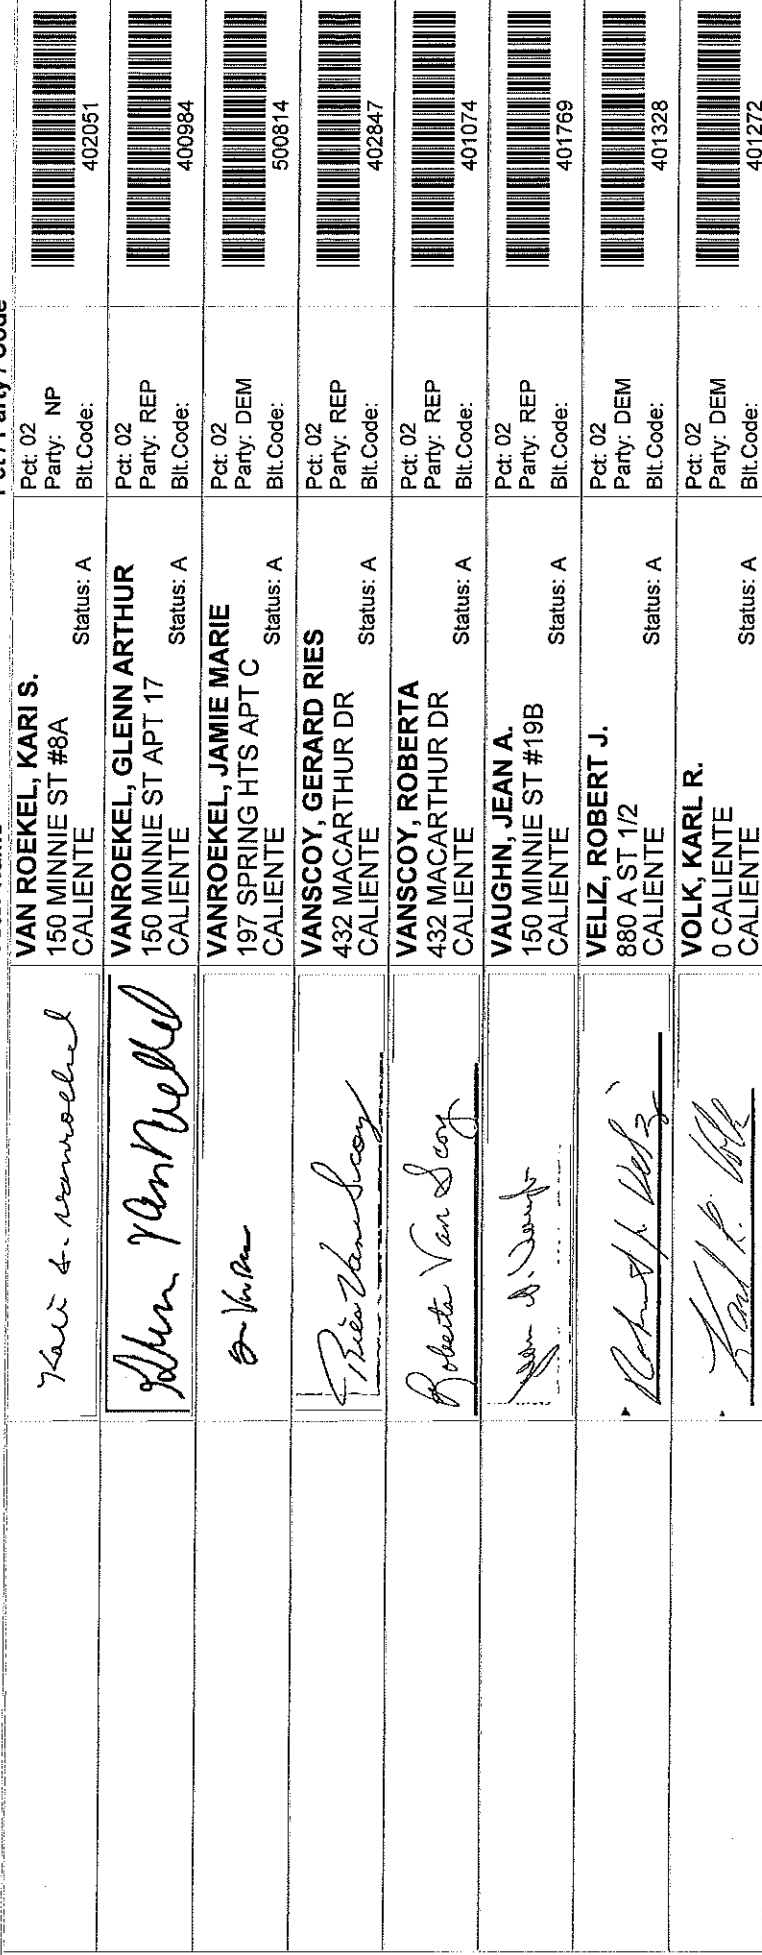 Pct / Party / Code
Kari S. Vanroekel
VAN ROEKEL, KARI S.
150 MINNIE ST #8A
CALIENTE
Status: A
Pct: 02
Party: NP
Blt.Code:
402051
VANROEKEL, GLENN ARTHUR
150 MINNIE ST APT 17
CALIENTE
Status: A
Pct: 02
Party: REP
Blt.Code:
400984
VANROEKEL, JAMIE MARIE
197 SPRING HTS APT C
CALIENTE
Status: A
Pct: 02
Party: DEM
Blt.Code:
500814
Ries VanScoy
VANSCOY, GERARD RIES
432 MACARTHUR DR
CALIENTE
Status: A
Pct: 02
Party: REP
Blt.Code:
402847
Roberta Van Scoy
VANSCOY, ROBERTA
432 MACARTHUR DR
CALIENTE
Status: A
Pct: 02
Party: REP
Blt.Code:
401074
Jean A. Vaughn
VAUGHN, JEAN A.
150 MINNIE ST #19B
CALIENTE
Status: A
Pct: 02
Party: REP
Blt.Code:
401769
Robert J. Veliz
VELIZ, ROBERT J.
880 A ST 1/2
CALIENTE
Status: A
Pct: 02
Party: DEM
Blt.Code:
401328
Karl R. Volk
VOLK, KARL R.
0 CALIENTE
CALIENTE
Status: A
Pct: 02
Party: DEM
Blt.Code:
401272